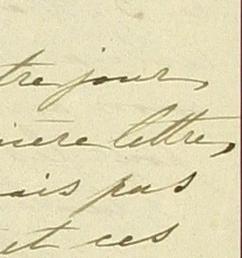 tre jour,
nière lettre,
ais pas
et ces